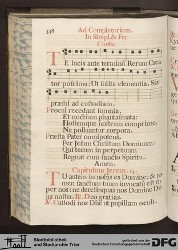 338
Ad Completorium.
In Simpl. & Fer.
Cantus.
TE lucis ante terminum Rerum Crea-
tor poscimus: Ut solita clementia, Sis
præsul ad custodiam.
Procul recedant somnia,
Et noctium phantasmata:
Hostemque nostrum comprime,
Ne polluantur corpora.
Præsta Pater omnipotens,
Per Jesum Christum Dominum:
Qui tecum in perpetuum
Regnat cum sancto Spiritu.
Amen.
Capitulum Jerem. 14.
TU autem in nobis es Domine, & no-
men sanctum tuum invocatum est su-
per nos ne derelinquas nos Domine De-
us noster. ℟. Deo gratias.
℣. Custodi nos Dne ut pupillam oculi.
Stadtbibliothek
und Stadtarchiv Trier
gefördert von der
DFG